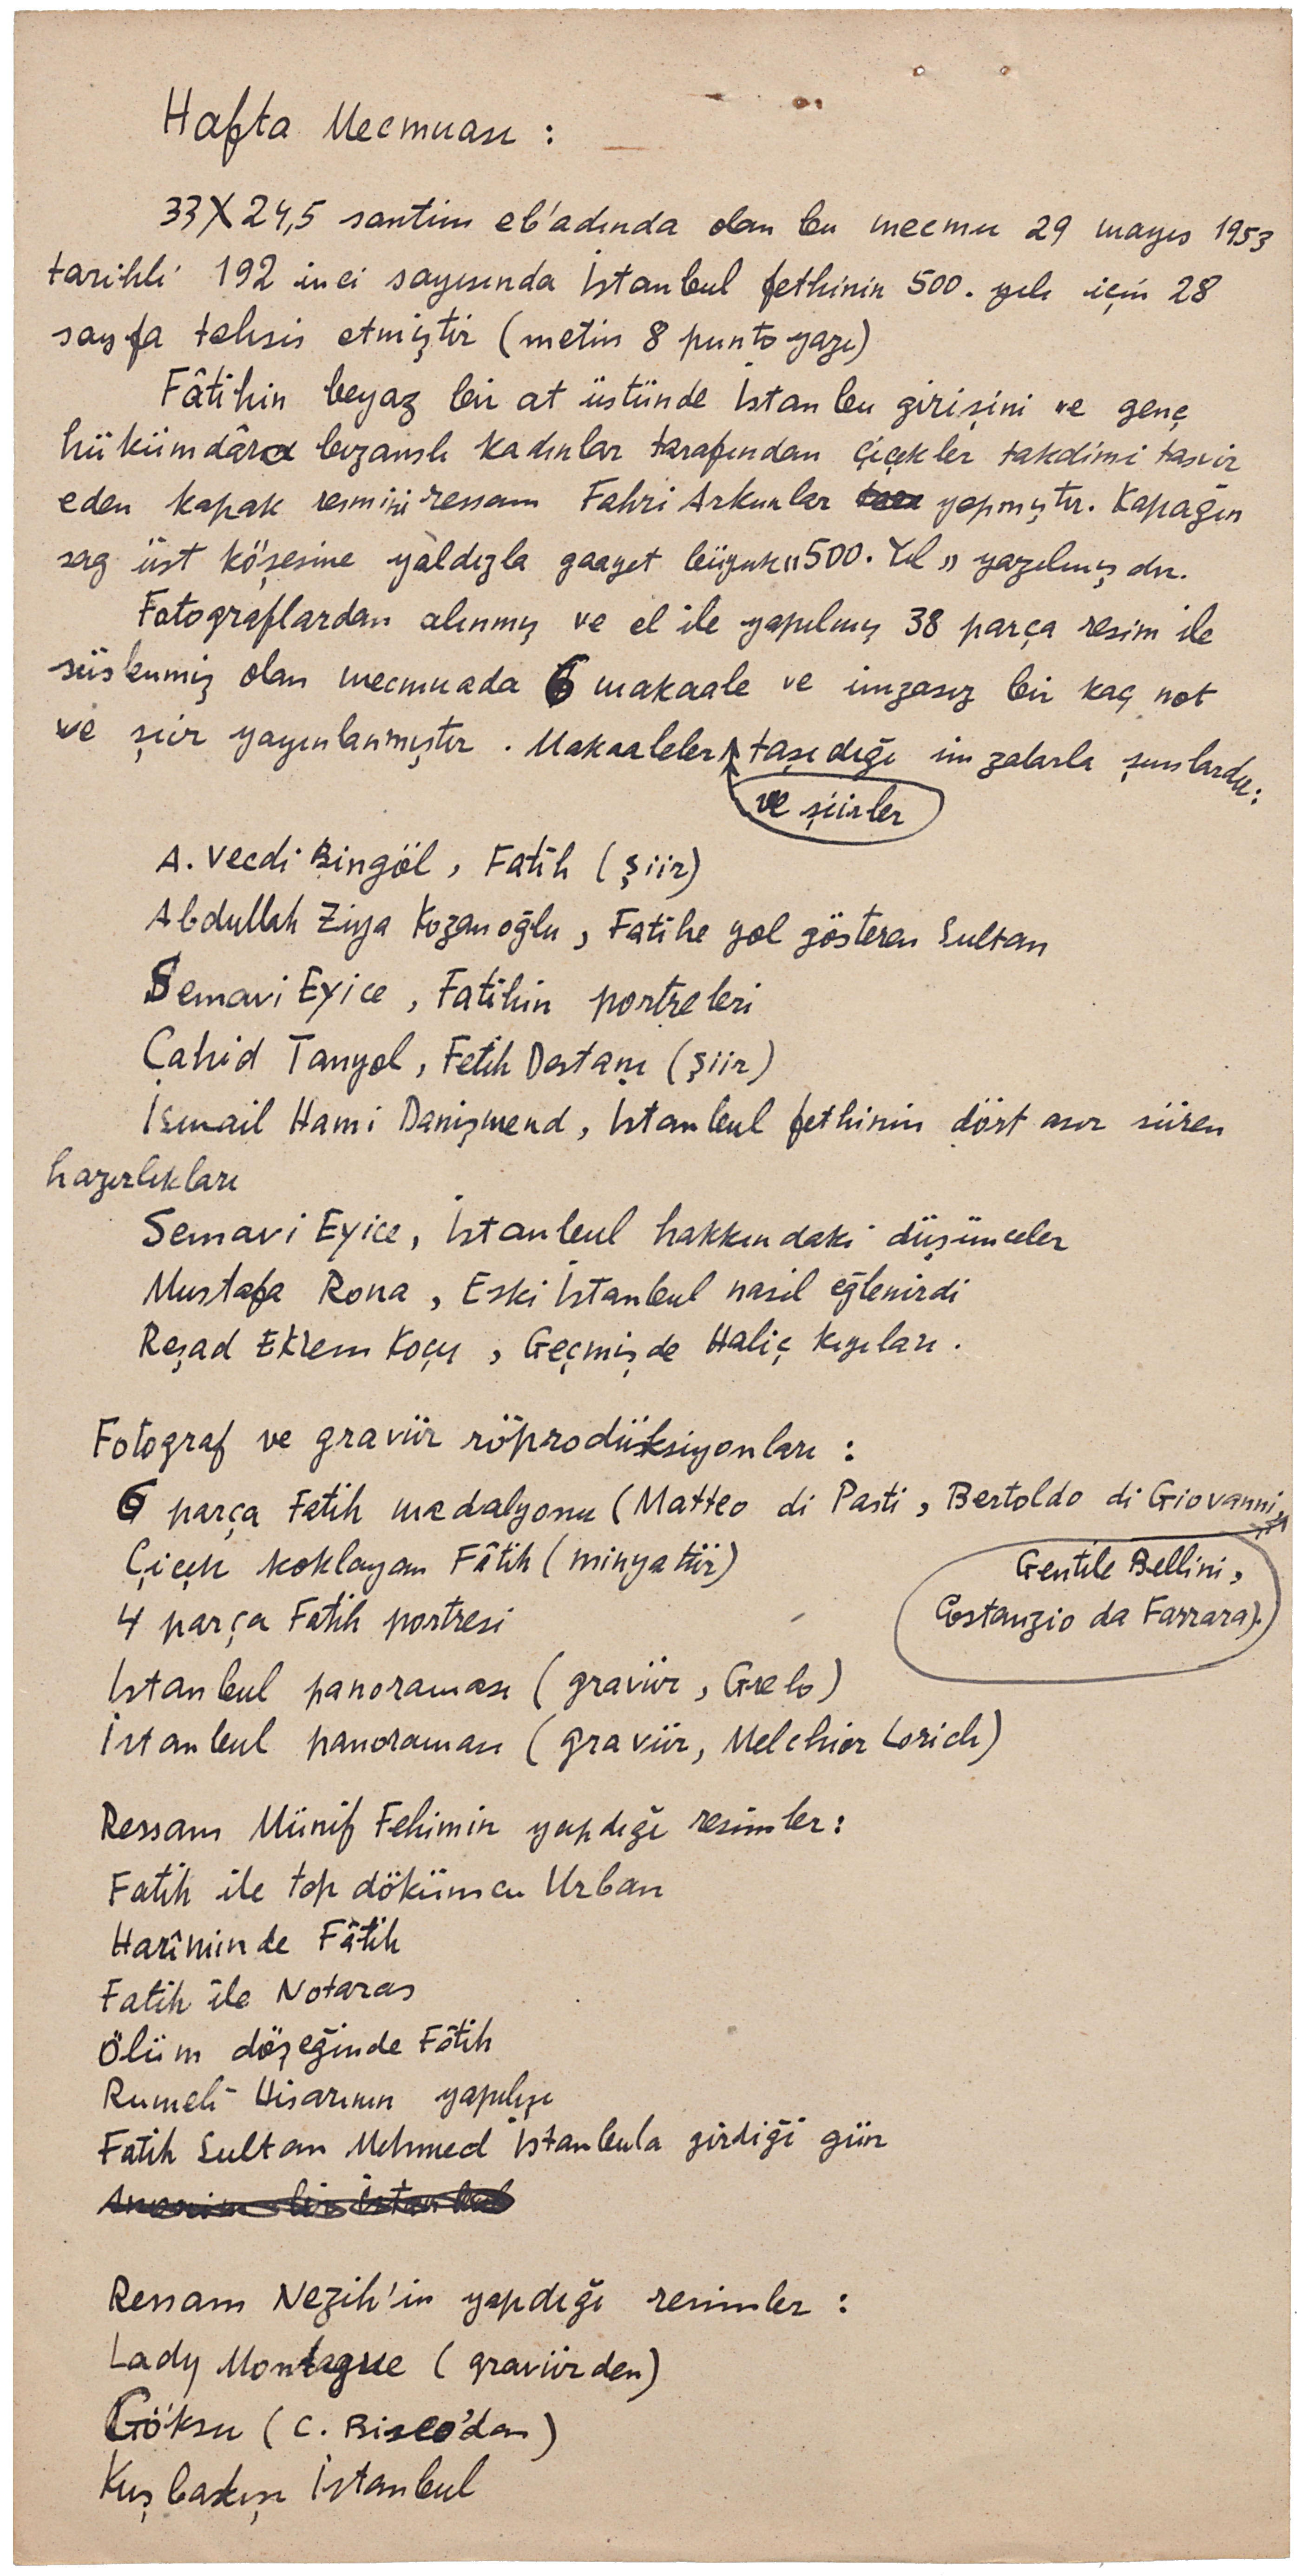 Hafta Mecmuası :
33X24,5 santim eb'adında olan bu mecmu 29 mayıs 1953
tarihli 192 inci sayısında İstanbul fethinin 500. yılı için 28
sayfa tahsis etmiştir (metin 8 punto yazı)
Fâtihin beyaz bir at üstünde İstanbu girişini ve genç
hükümdâra bizanslı kadınlar tarafından çiçekler takdimi tasvir
eden kapak resmini ressam Fahri Arkunlar yapmıştır. Kapağın
sag üst köşesine yaldızla gaayet büyük „500. Yıl „ yazılmışdır.
Fotograflardan alınmış ve el ile yapılmış 38 parça resim ile
süslenmiş olan mecmuada 6 makaale ve imzasız bir kaç not
ve şiir yayınlanmıştır. Makaaleler ve şiirler taşıdığı imzalarla şunlardır:
A. Vecdi Bingöl, Fatih (şiir)
Abdullah Ziya Kozanoğlu, Fatihe yol gösteren Sultan
Semavi Eyice, Fatihin portreleri
Cahid Tanyol, Fetih Destanı (şiir)
İsmail Hami Danişmend, İstanbul fethinin dört asır süren
hazırlıkları
Semavi Eyice, İstanbul hakkındaki düşünceler
Mustafa Rona, Eski İstanbul nasıl eğlenirdi
Reşad Ekrem Koçu, Geçmişde Haliç kıyıları.
Fotograf ve gravür röprodüksiyonları :
6 parça Fatih madalyonu (Matteo di Pasti, Bertoldo di Giovanni,
Gentile Bellini,
Costanzio da Farrara).
Çiçek koklayan Fâtih (minyatür)
4 parça Fatih portresi
İstanbul panoraması (gravür, Grelo)
İstanbul panoraması (gravür, Melchior Lorich)
Ressam Münif Fehimin yapdığı resimler:
Fatih ile top dökümcu Urban
Harîminde Fâtih
Fatih ile Notaras
Ölüm döşeğinde Fâtih
Rumeli Hisarının yapılışı
Fatih Sultan Mehmed İstanbula girdiği gün
Ressam Nezih'in yapdığı resimler :
Lady Montague (gravürden)
Göksu (C. Biseo'dan)
Kuşbakışı İstanbul